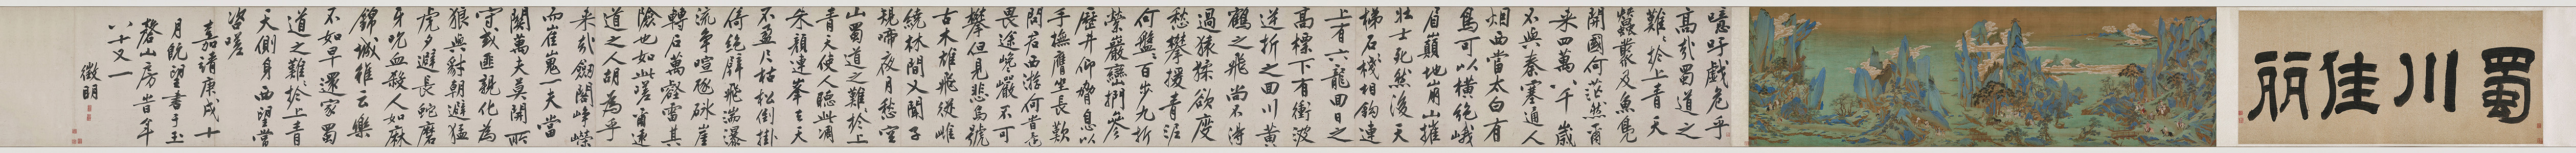 蜀川佳丽
噫吁戲危乎
高哉蜀道之
難難於上青天
蠶叢及魚鳧
開國何茫然爾
來四萬八千歲
不與秦塞通人
烟西當太白有
鳥可以橫絕峨
眉巔地崩山摧
壯士死然後天
梯石棧相鈎連
上有六龍回日之
高標下有衝波
逆折之回川黃
鶴之飛尚不得
過猿猱欲度
愁攀援青泥
何盤盤百步九折
縈巖巒捫參
歷井仰脅息以
手撫膺坐長歎
問君西游何當還
畏途巉巖不可
攀但見悲鳥號
古木雄飛從雌
繞林間又聞子
規啼夜月愁空
山蜀道之難於上
青天使人聽此凋
朱顏連峯去天
不盈尺枯松倒掛
倚絕壁飛湍瀑
流爭喧豗砯崖
轉石萬壑雷其
險也如此嗟爾遠
道之人胡為乎
來哉劒閣崢嶸
而崔嵬一夫當
關萬夫莫開所
守或匪親化為
狼與豺朝避猛
虎夕避長蛇磨
牙吮血殺人如麻
錦城雖云樂
不如早還家蜀
道之難於上青
天側身西望常
咨嗟
嘉靖庚戌十
月既望書于玉
磬山房昔年
八十又一
徵明